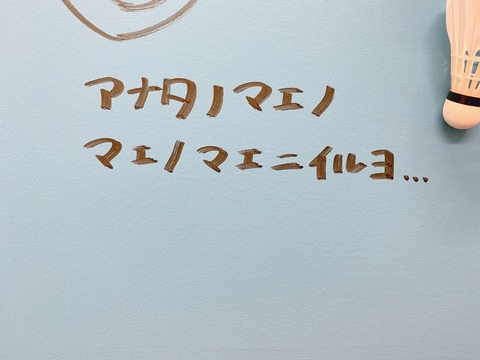 アナタノマエノ
マエノマエニイルヨ...